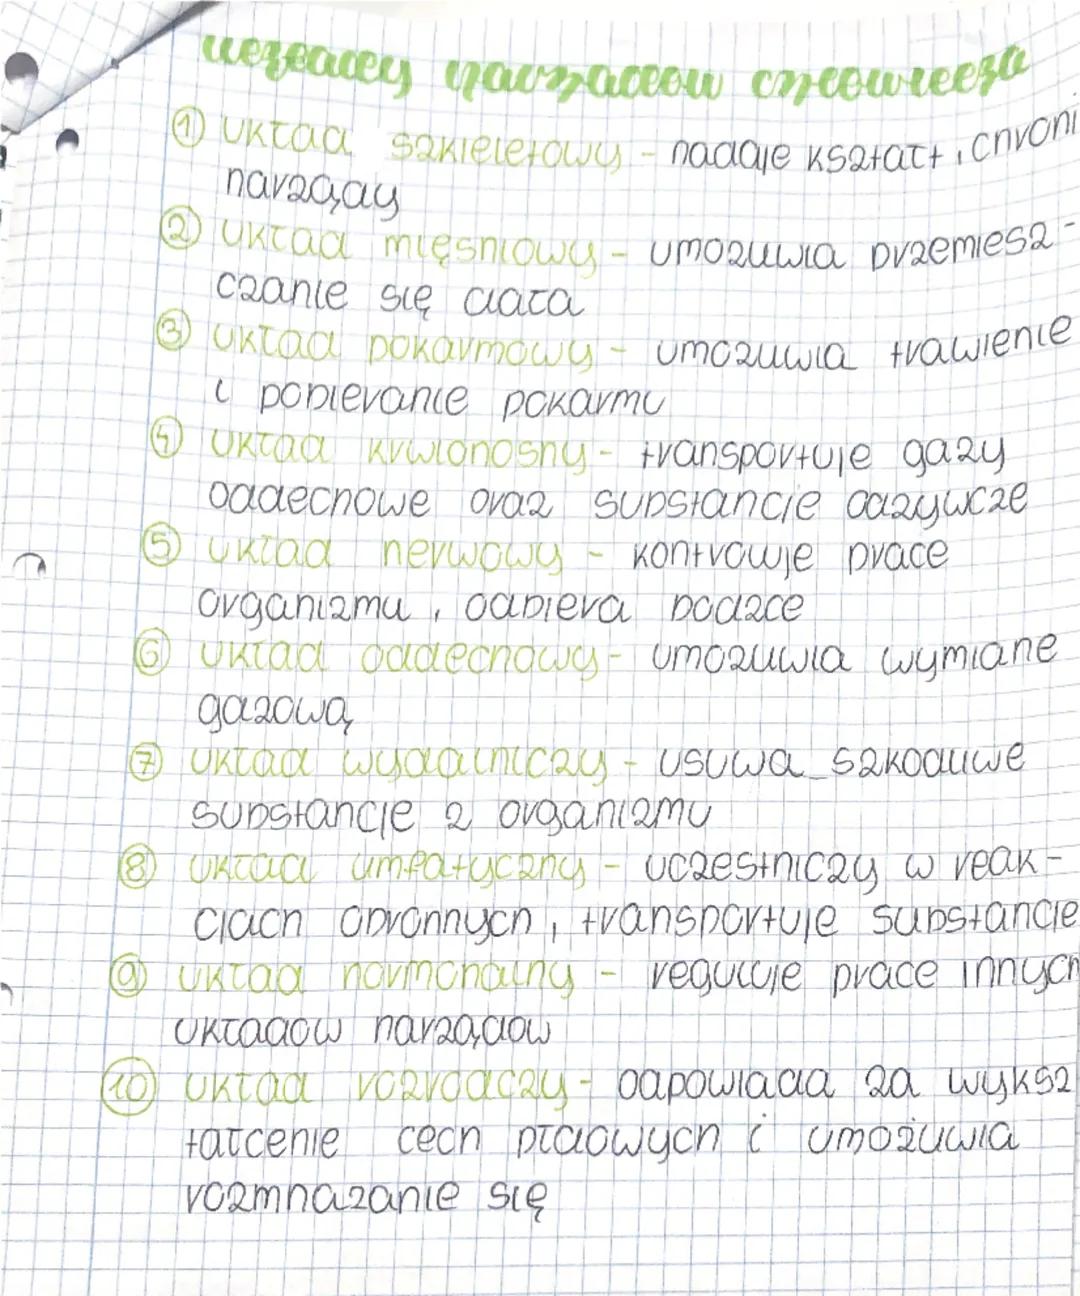 układy narządów człowieka
① układ szkieletowy - nadaje kształt, chroni
narządy
② układ mięśniowy - umożliwia przemiesz-
czanie się ciała
③ układ pokarmowy - umożliwia trawienie
i pobieranie pokarmu
④ układ krwionośny - transportuje gazy
oddechowe oraz substancje odżywcze
⑤ układ nerwowy - kontroluje prace
organizmu, odbiera bodźce
⑥ układ oddechowy - umożliwia wymiane
gazową
⑦ układ wydalniczy - usuwa szkodliwe
substancje z organizmu
⑧ układ limfatyczny - uczestniczy w reak-
cjach obronnych, transportuje substancje
⑨ układ hormonalny - reguluje prace innych
układów narządów
⑩ układ rozrodczy - odpowiada za wyksz
tałcenie cech płciowych i umożliwia
rozmnażanie się